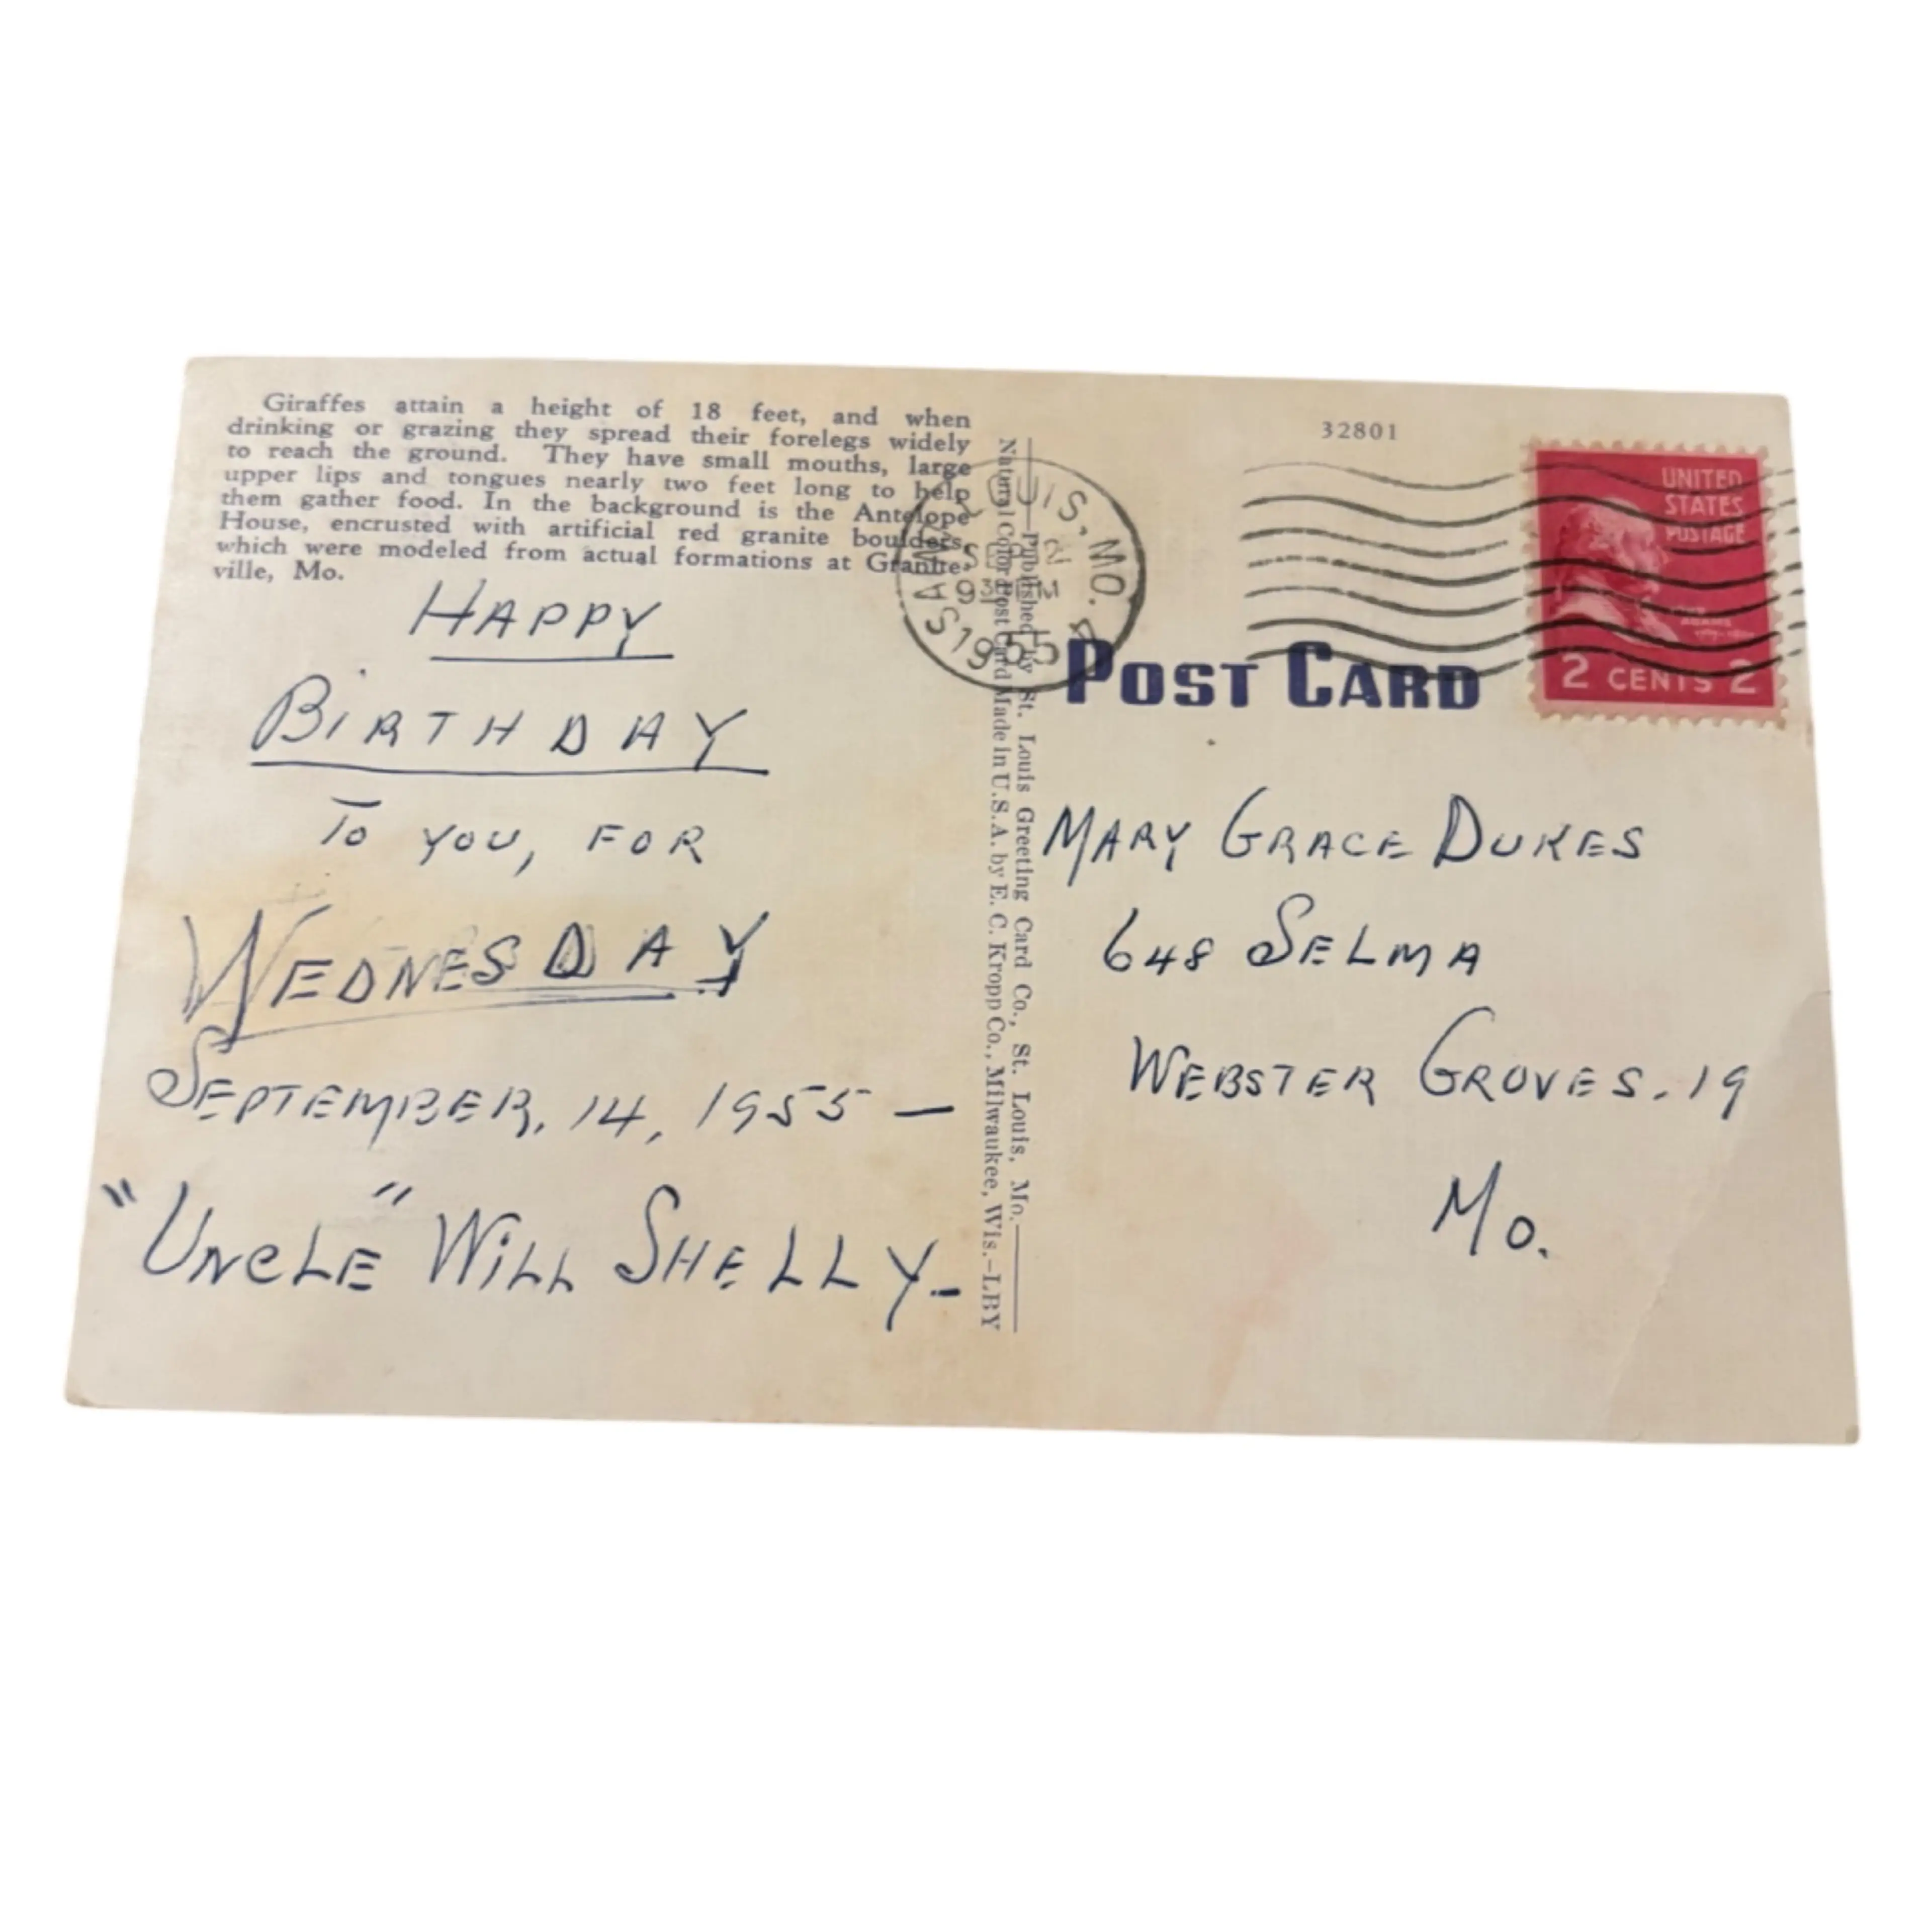 Giraffes attain a height of 18 feet, and when
drinking or grazing they spread their forelegs widely
to reach the ground. They have small mouths, large
upper lips and tongues nearly two feet long to help
them gather food. In the background is the Antelope
House, encrusted with artificial red granite boulders,
which were modeled from actual formations at Granite-
ville, Mo.
HAPPY
BIRTHDAY
TO YOU, FOR
WEDNESDAY
SEPTEMBER, 14, 1955 —
"UNCLE" WILL SHELLY-
Published by St. Louis Greeting Card Co., St. Louis, Mo.
Natural Color Post Card Made in U.S.A. by E. C. Kropp Co., Milwaukee, Wis.-LBY
LOUIS, MO. 4
1955
32801
POST CARD
UNITED
STATES
POSTAGE
ADAMS
2 CENTS 2
MARY GRACE DUKES
648 SELMA
WEBSTER GROVES. 19
MO.